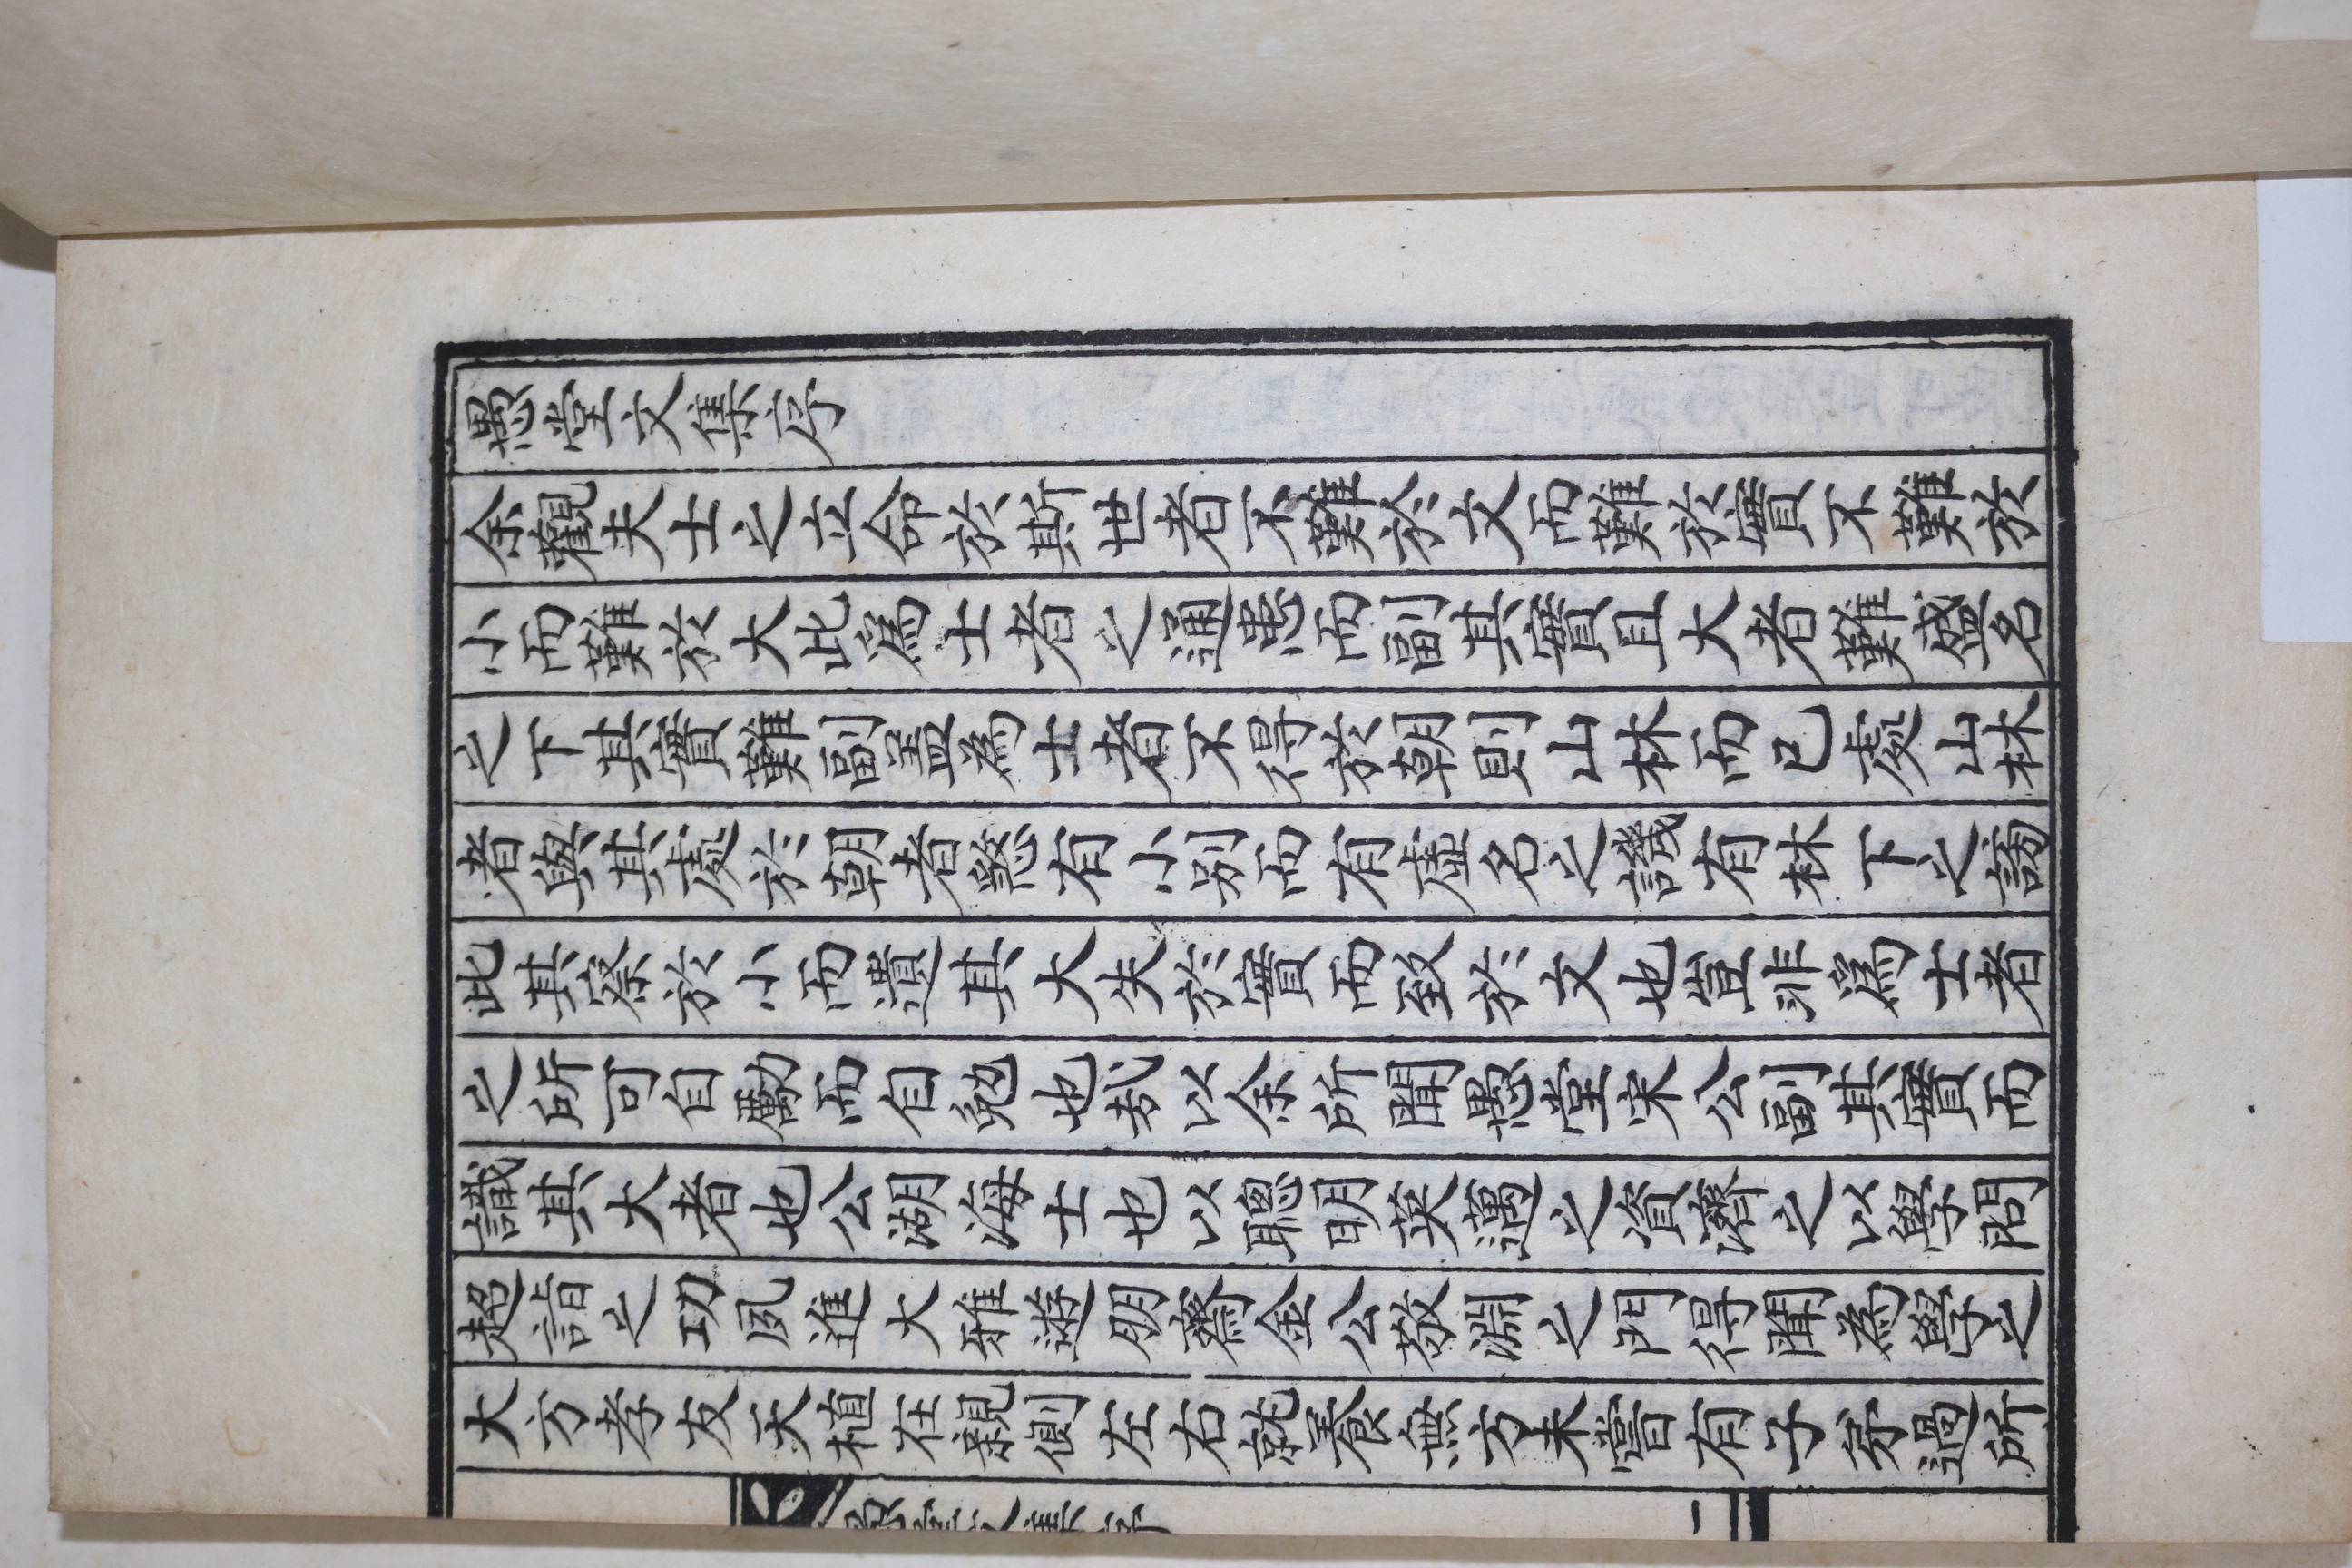 愚堂文集序
余觀夫士之立命於斯世者不難於文而難於實不難於
小而難於大此爲士者之通患而副其實且大者難盛名
之下其實難副盖爲士者不得於朝則山林而已處山林
者與其處於朝者懸有小别而有虛名之譏有林下之謗
此其察於小而遺其大失於實而致於文也豈非爲士者
之所可自勵而自勉也哉以余所聞愚堂宋公副其實而
識其大者也公湖海士也以聰明英邁之資濟之以學問
超詣之功夙進大雅遊明齋金公敬淵之門得聞爲學之
大方孝友天植在親側左右就養無方未嘗有子弟過所
愚堂文集序
一